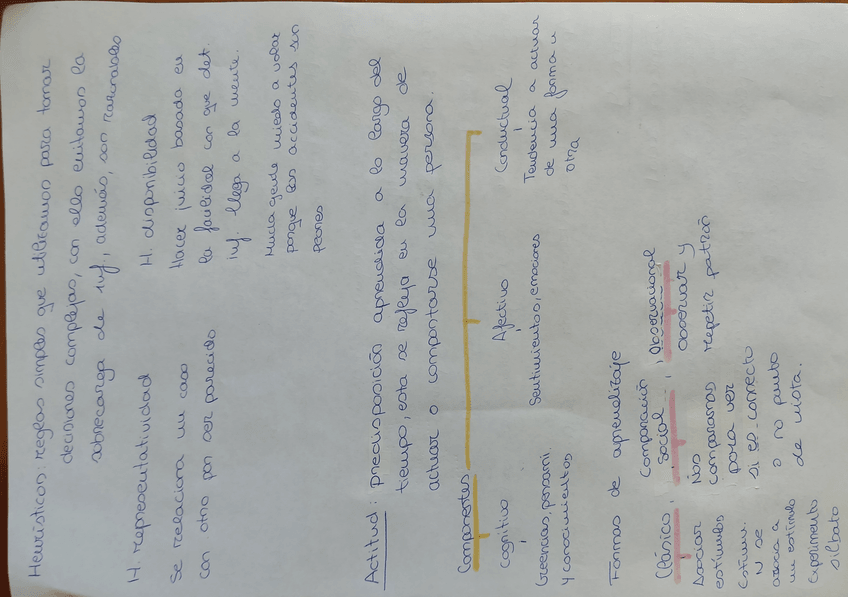 Heurísticos: reglas simples que utilizamos para tomar
decisiones complejas, con ello evitamos la
sobrecarga de inf, además, son razonables
H. representatividad
Se relaciona un caso
con otro por ser parecido
H. disponibilidad
Hacer juicio basada en
la facilidad con que det.
inf. llega a la mente.
Mucha gente miedo a volar
porque los accidentes son
peores
Actitud: predisposición aprendida a lo largo del
tiempo, esta se refleja en la manera de
actuar o comportarse una persona.
Componentes
Cognitivo
Creencias, pensami.
y conocimientos
Afectivo
Sentimientos, emociones
Conductual
Tendencia a actuar
de una forma u
otra
Formas de aprendizaje
Clásico
Asociar
estímulos
Estímu.
N se
asocia a
un estímulo
Experimento
silbato
Comparación
social
Nos
comparamos
para ver
si es correcto
o no punto
de vista.
Observacional
observar y
repetir patrón